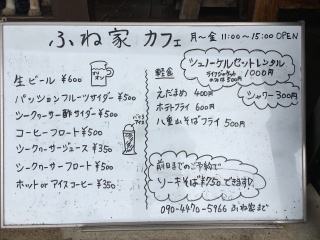 ふね家 カフェ
月〜金 11:00〜15:00 OPEN
生ビール ¥600
オリオン
パッションフルーツサイダー ¥500
シークヮーサー酢サイダー ¥500
コーヒーフロート ¥500
シークヮーサージュース ¥350
シークヮーサーフロート ¥500
ホット or アイスコーヒー ¥350
バニラアイス
軽食
えだまめ 400円
ポテトフライ 600円
八重山そばフライ 500円
シュノーケルセットレンタル
ライフジャケット
のみは 500
1000円
シャワー 300円
前日までのご予約で
ソーキそば¥750できます!
090-4470-5966 ふね家まで